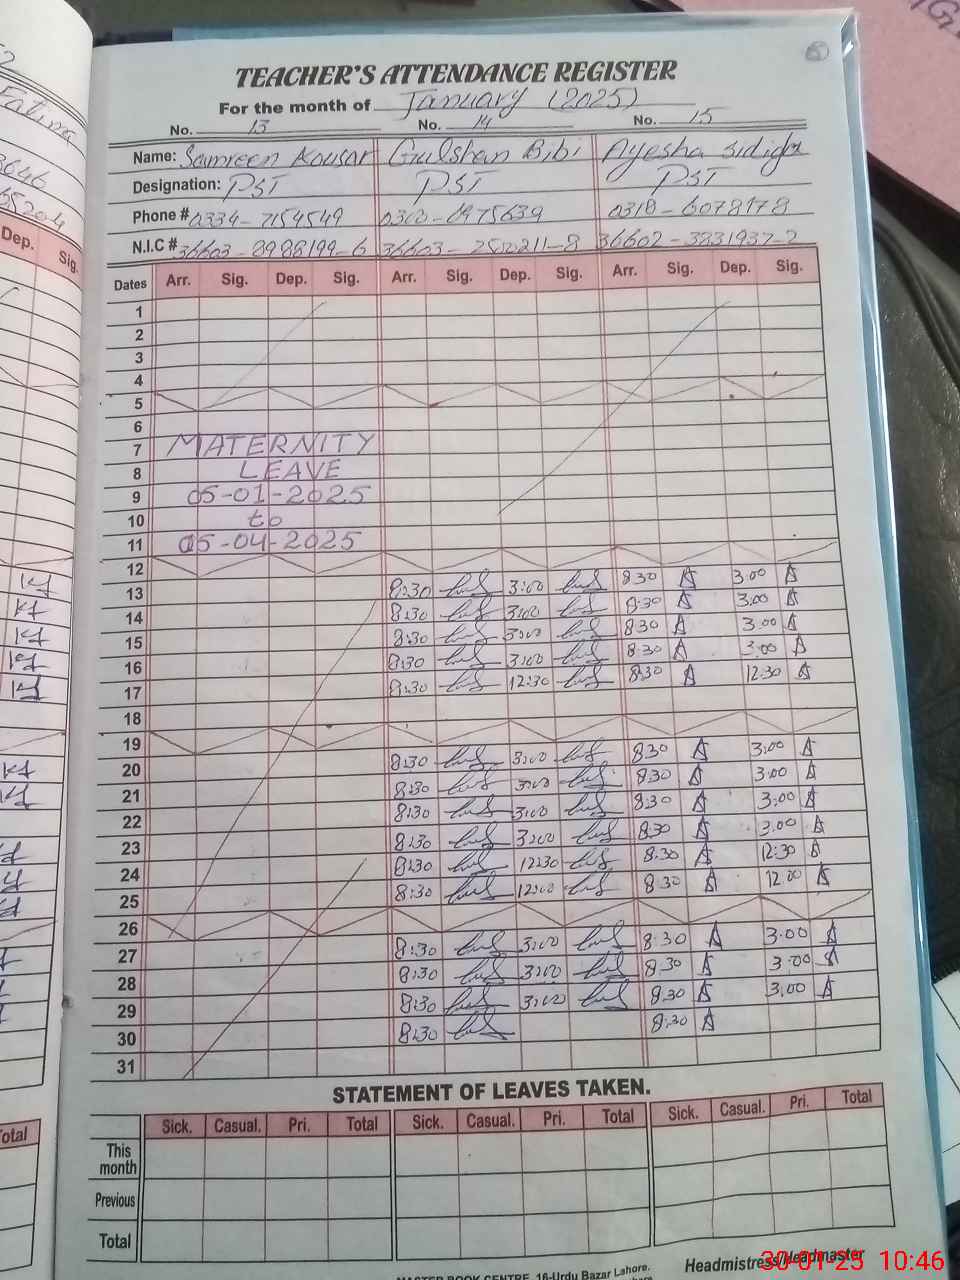 TEACHER'S ATTENDANCE REGISTER
For the month of January (2025)
No. 13 No. 14 No. 15
Name: Samreen Kousar Gulshan Bibi Ayesha Sidiqa
Designation: PST PST PST
Phone # 0334-7154549 0318-6078178
N.I.C # 36603-8988199-6 36602-3831937-2
Dates Arr. Sig. Dep. Sig. Arr. Sig. Dep. Sig. Arr. Sig. Dep. Sig.
1
2
3
4
5
6
7 MATERNITY
8 LEAVE
9 05-01-2025
10 to
11 05-04-2025
12
13 8:30 3:00 8:30 3:00
14 8:30 3:00 8:30 3:00
15 8:30 3:00 8:30 3:00
16 8:30 3:00 8:30 3:00
17 8:30 12:30 8:30 12:30
18
19
20 8:30 3:00 8:30 3:00
21 8:30 3:00 8:30 3:00
22 8:30 3:00 8:30 3:00
23 8:30 3:00 8:30 3:00
24 8:30 12:30 8:30 12:30
25 8:30 12:00 8:30 12:00
26
27 8:30 3:00 8:30 3:00
28 8:30 3:00 8:30 3:00
29 8:30 3:00 8:30 3:00
30 8:30 8:30
31
STATEMENT OF LEAVES TAKEN.
Sick. Casual. Pri. Total Sick. Casual. Pri. Total Sick. Casual. Pri. Total
This month
Previous
Total
Headmistress/Headmaster
MASTER BOOK CENTRE, 16-Urdu Bazar Lahore.
30-01-25 10:46
Fatima
Dep. Sig.